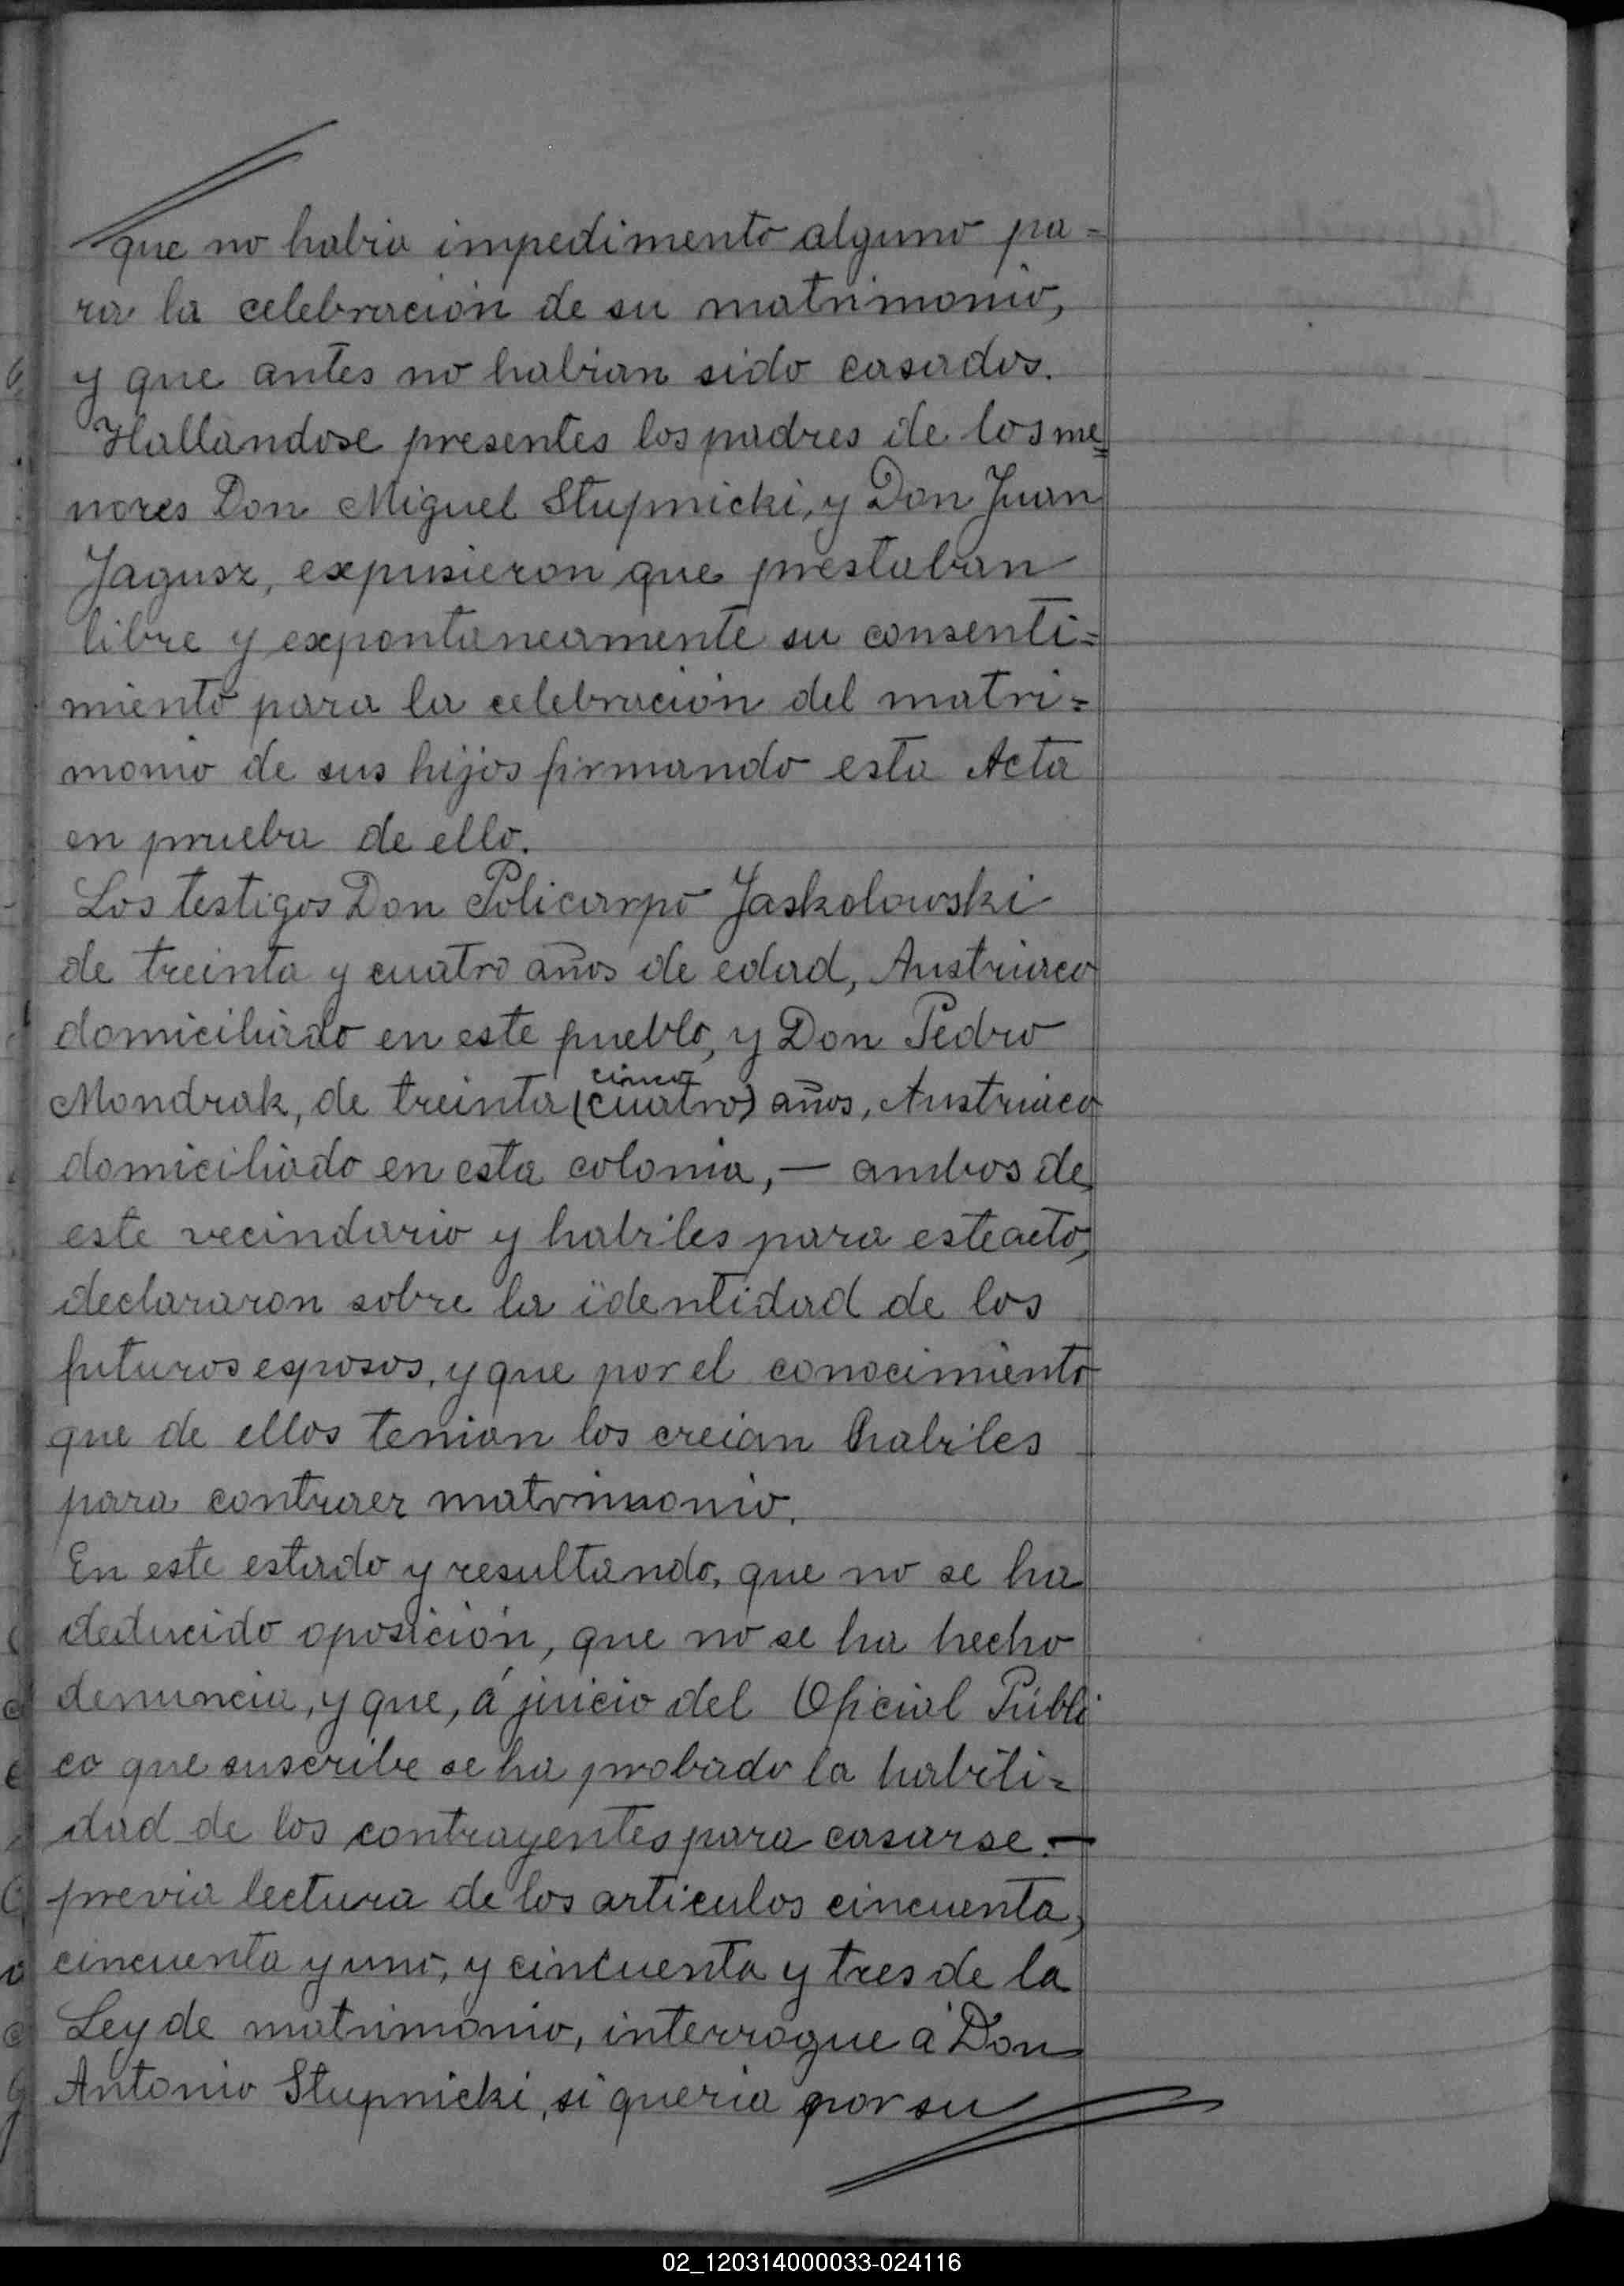 que no habia impedimento alguno pa=
ra la celebración de su matrimonio,
y que antes no habian sido casados.
Hallandose presentes los padres de los me=
nores Don Miguel Stupnicki, y Don Juan
Jagusz, expusieron que prestaban
libre y expontaneamente su consenti=
miento para la celebración del matri=
monio de sus hijos firmando esta Acta
en prueba de ello.
Los testigos Don Policarpo Jaskolowski
de treinta y cuatro años de edad, Austriaco
domiciliado en este pueblo, y Don Pedro
cinco
Mondrak, de treinta (cuatro) años, Austriaco
domiciliado en esta colonia, — ambos de
este vecindario y habiles para este acto,
declararon sobre la identidad de los
futuros esposos, y que por el conocimiento
que de ellos tenian los creian habiles
para contraer matrimonio.
En este estado y resultando, que no se ha
deducido oposición, que no se ha hecho
denuncia, y que, á juicio del Oficial Públi
co que suscribe se ha probado la habili=
dad de los contrayentes para casarse. —
previa lectura de los articulos cincuenta,
cincuenta y uno, y cincuenta y tres de la
Ley de matrimonio, interrogue á Don
Antonio Stupnicki, si queria por su
02_120314000033-024116